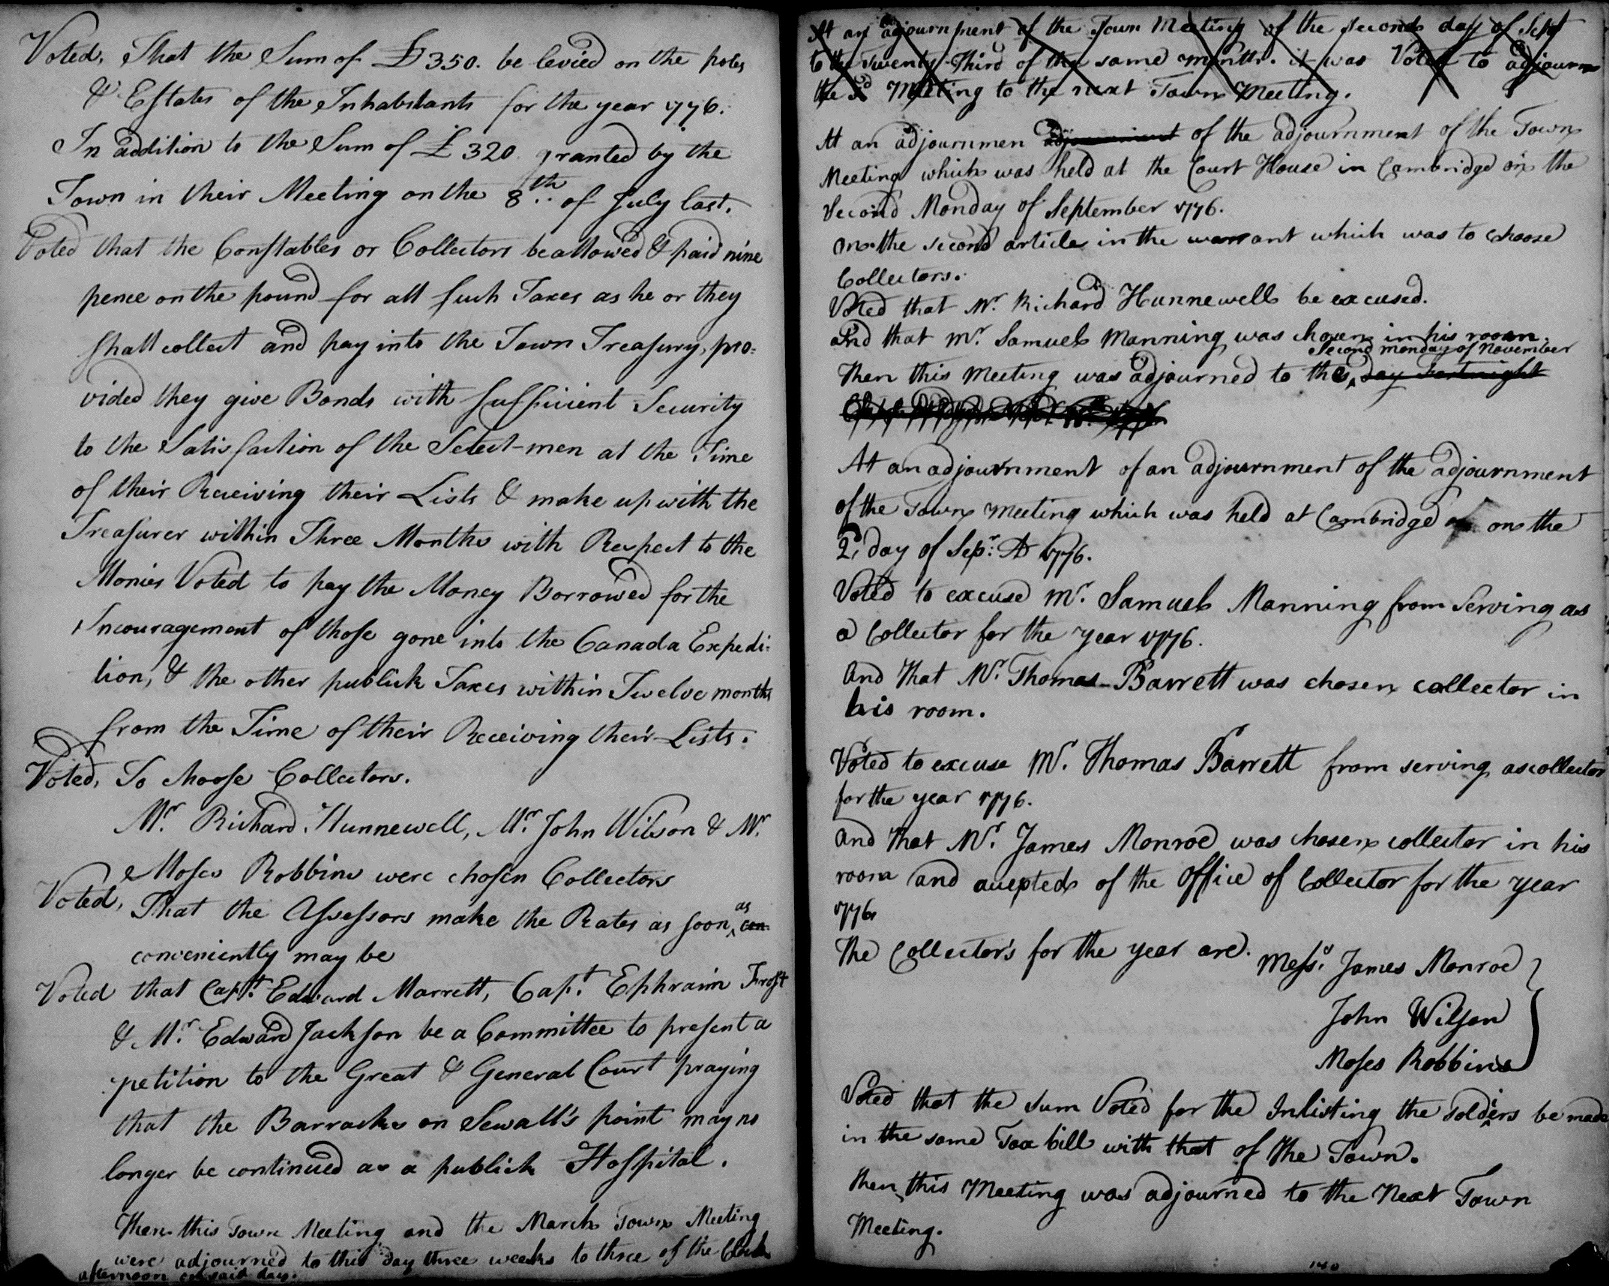 Voted, That the Sum of £350. be levied on the poles
& Estates of the Inhabitants for the year 1776.
In addition to the Sum of £320 granted by the
Town in their Meeting on the 8th of July last.
Voted that the Constables or Collectors be allowed & paid nine
pence on the pound for all such Taxes as he or they
shall collect and pay into the Town Treasury, pro:
vided they give Bonds with sufficient Security
to the Satisfaction of the Select-men at the Time
of their Receiving their Lists & make up with the
Treasurer within Three Months with Respect to the
Monies Voted to pay the Money Borrowed for the
Incouragement of those gone into the Canada Expedi:
tion, & the other publick Taxes within Twelve months
from the Time of their Receiving their Lists.
Voted, To choose Collectors.
Mr. Richard Hunnewell, Mr. John Wilson & Mr.
Moses Robbins were chosen Collectors
Voted, That the Assessors make the Rates as soon as con
conveniently may be
Voted that Capt. Edward Marrett, Capt. Ephraim Frost
& Mr. Edward Jackson be a Committee to present a
petition to the Great & General Court praying
that the Barracks on Sewall's point may no
longer be continued as a publick Hospital.
Then this Town Meeting and the March Town Meeting
were adjourned to this day three weeks to three of the Clock
afternoon on said day.
At an adjournment of the Town Meeting of the second day of Sept
to the Twenty Third of the same month. it was Voted to adjourn
the Sd Meeting to the next Town Meeting.
At an adjournmen adjournment of the adjournment of the Town
Meeting which was held at the Court House in Cambridge on the
Second Monday of September 1776.
on the second article in the warrant which was to choose
Collectors.
Voted that Mr. Richard Hunnewell be excused.
and that Mr. Samuel Manning was chosen in his room.
second monday of November
Then this Meeting was adjourned to the day Fortnight
At an adjournment of an adjournment of the adjournment
of the Town Meeting which was held at Cambridge on the
2d day of Sepr. AD 1776.
Voted to excuse Mr. Samuel Manning from Serving as
a Collector for the year 1776.
and That Mr. Thomas Barrett was chosen collector in
his room.
Voted to excuse Mr. Thomas Barrett from serving as collector
for the year 1776.
and that Mr. James Monroe was chosen collector in his
room and accepted of the Office of Collector for the year
1776
The Collector's for the year are. Messs. James Monroe
John Wilson
Moses Robbins
Voted that the sum Voted for the Inlisting the soldiers be made
in the same Tax bill with that of the Town.
Then this Meeting was adjourned to the Next Town
Meeting.
140